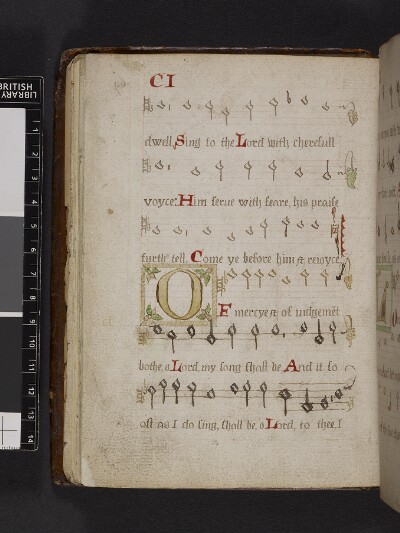 CI
dwell, Sing to the Lord with cherefull
voyce: Him serue with feare, his praise
furth tell. Come ye before him & reioyce
OF mercye & of iudgemēt
bothe, o Lord, my song shall be, And it so
oft as I do sing, shall be, o Lord, to thee. I
BRITISH
LIBRARY
1
2
3
4
5
6
7
8
9
10
11
12
13
14